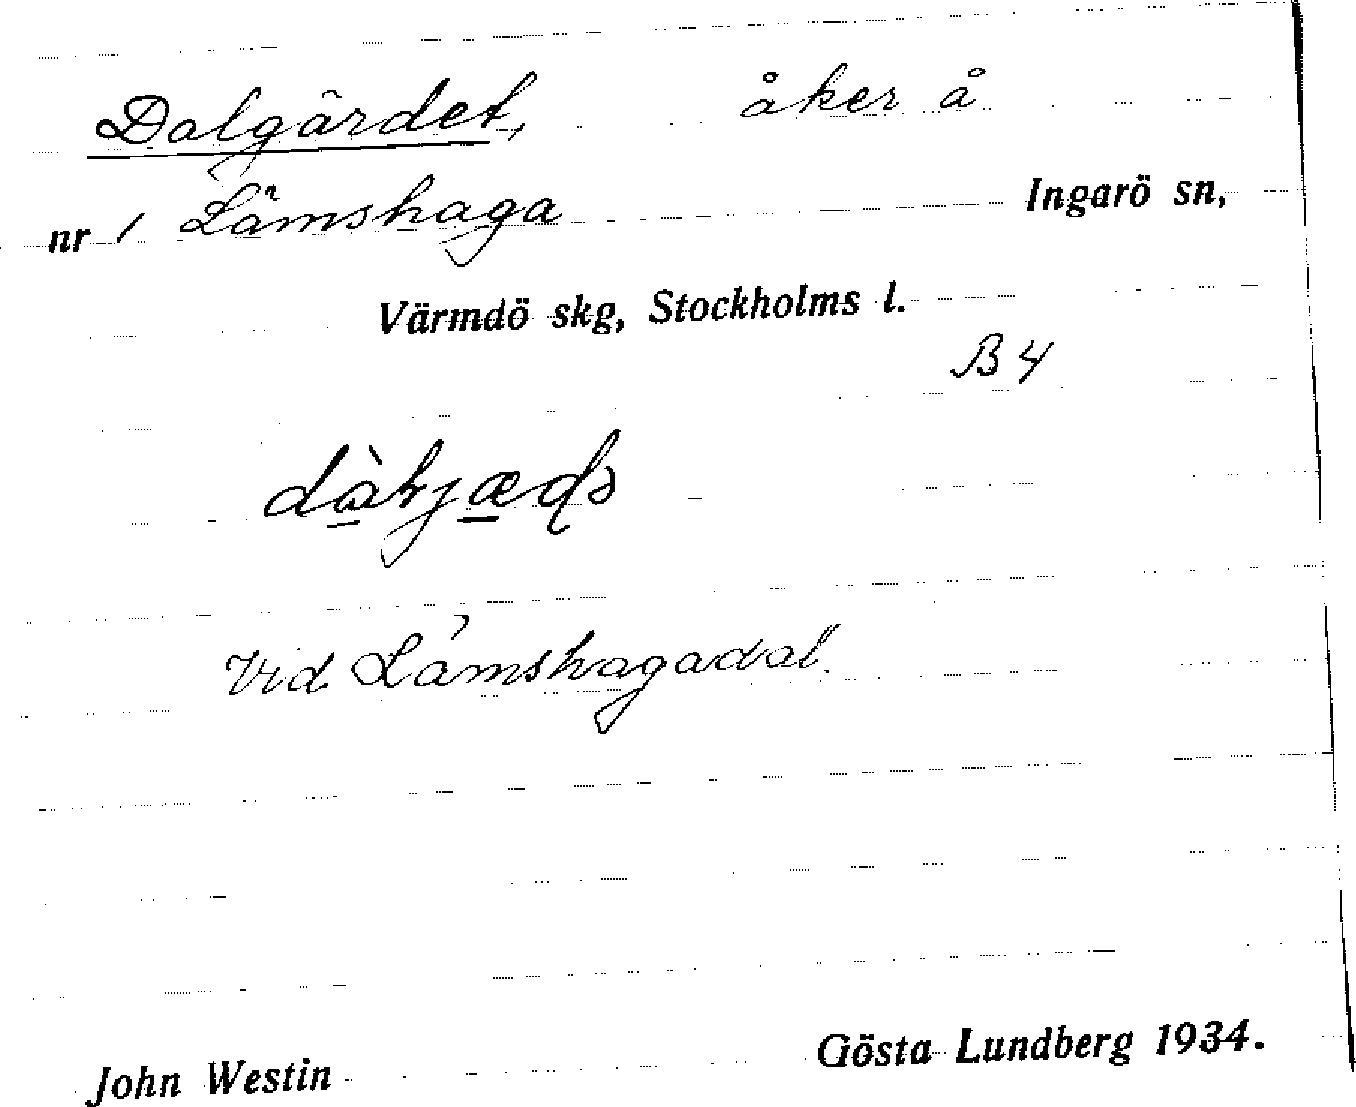 Dalgärdet, åker å
nr 1 Lämshaga Ingarö sn,
Värmdö skg, Stockholms l.
B4
Vid Lämshagadal.
John Westin Gösta Lundberg 1934.